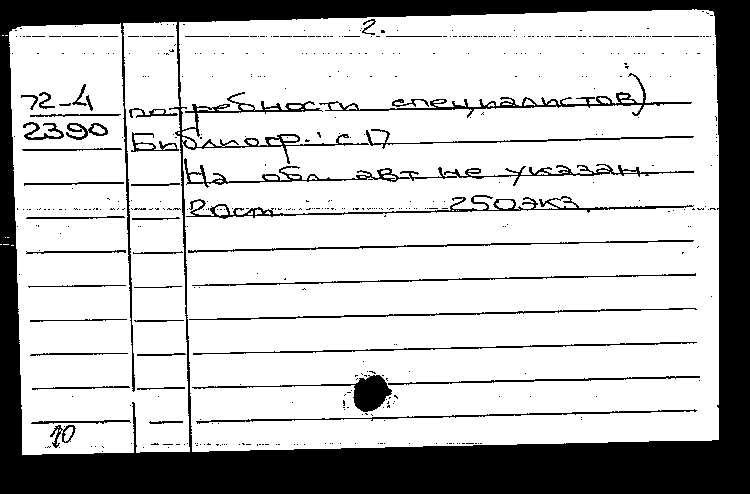 2.
72-4 потребности специалистов).
2390 Библиогр.: с 17
На обл. авт не указан.
20см 250экз.
10